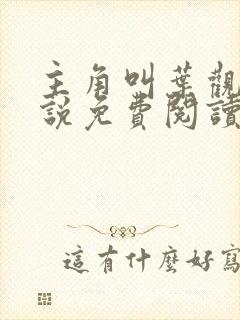 主角叫葉觀
說免費閱讀
這有什麼好寫